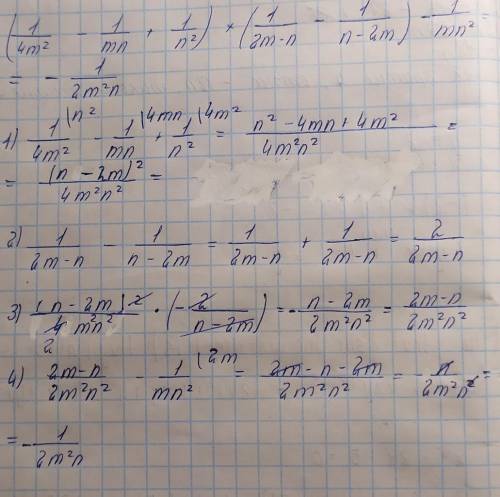 (1/4m² - 1/mn + 1/n²) × (1/2m-n - 1/n-2m) - 1/mn² =
= - 1/2m²n
1) 1/4m² |n² - 1/mn |4mn + 1/n² |4m² = n² - 4mn + 4m²/4m²n² =
= (n - 2m)²/4m²n² =
2) 1/2m-n - 1/n-2m = 1/2m-n + 1/2m-n = 2/2m-n
3) (n-2m)2/4 mn² 2 · (- 2/n-2m) = - n-2m/2m²n² = 2m-n/2m²n²
4) 2m-n/2m²n² - 1/mn² |2m = 2m-n-2m/2m²n² = - n/2m²n² =
= - 1/2m²n